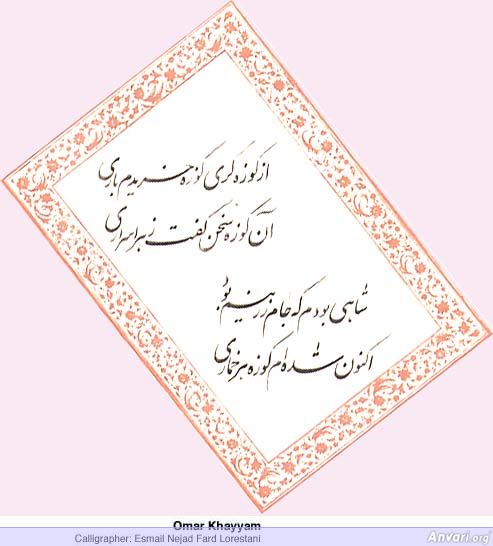 از کوزه گری کوزه خریدم باری
آن کوزه سخن گفت ز هر اسراری
شاهی بودم که جام زرینم بود
اکنون شده‌ام کوزه هر خماری
Omar Khayyam
Calligrapher: Esmail Nejad Fard Lorestani
Anvari.org